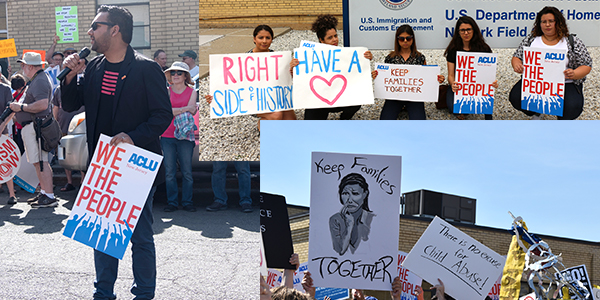 ACLU
New Jersey
WE
THE
PEOPLE
U.S. Immigration and
Customs Enforcement
U.S. Department
Newark Field
RIGHT
SIDE of HISTORY
HAVE A
ACLU
KEEP
FAMILIES
TOGETHER
ACLU
WE
THE
PEOPLE
ACLU
WE
THE
PEOPLE
Keep Families
TOGETHER
There is no excuse
for
Child Abuse!